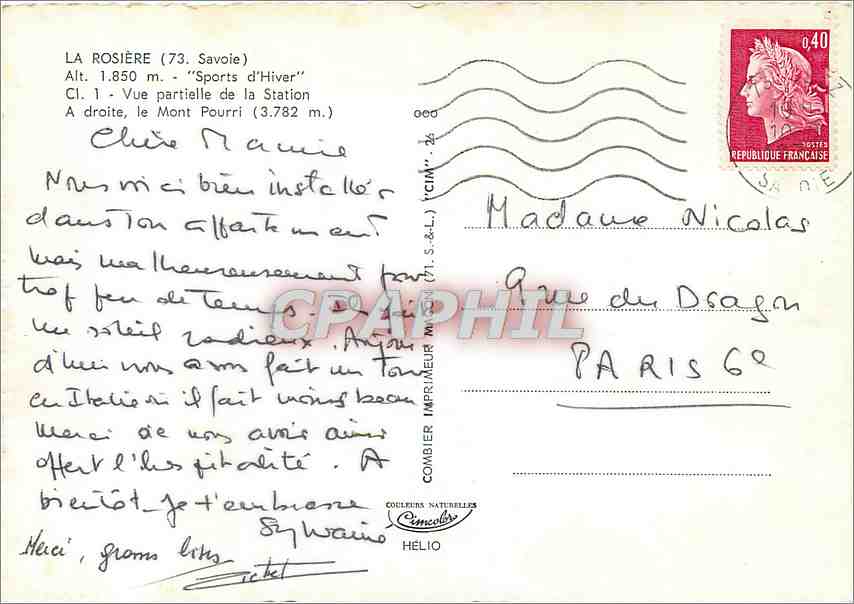 LA ROSIÈRE (73. Savoie)
Alt. 1.850 m. - "Sports d'Hiver"
Cl. 1 - Vue partielle de la Station
A droite, le Mont Pourri (3.782 m.)
Chère Mamie
Nous voici bien installés
dans ton appartement
mais malheureusement pour
trop peu de temps. Il fait
un soleil radieux. Aujour
d'hui nous avons fait un tour
en Italie où il fait moins beau
Merci de nous avoir ainsi
offert l'hospitalité. A
bientôt. Je t'embrasse
Sylvaine
Merci, grosses bises
COMBIER IMPRIMEUR MACON (71. S.-&-L.) "CIM" - 26
ooo
COULEURS NATURELLES
Cimcolor
HÉLIO
0,40
POSTES
RÉPUBLIQUE FRANÇAISE
SAVOIE
Madame Nicolas
9 rue du Dragon
PARIS 6e
CPAPHIL